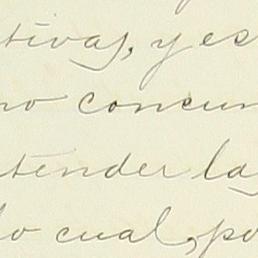 tivas, y es
no concur
tender las
lo cual, po